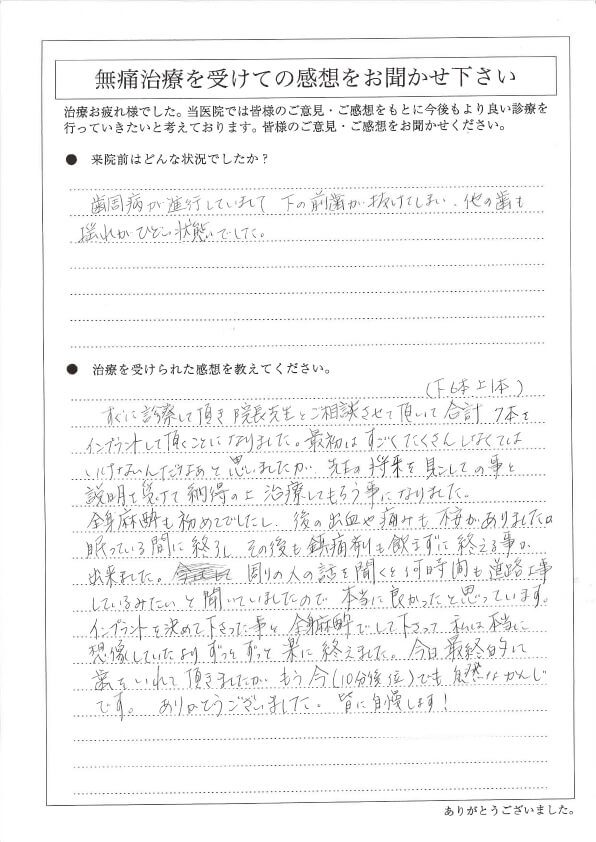 無痛治療を受けての感想をお聞かせ下さい
治療お疲れ様でした。当医院では皆様のご意見・ご感想をもとに今後もより良い診療を
行っていきたいと考えております。皆様のご意見・ご感想をお聞かせください。
● 来院前はどんな状況でしたか？
歯周病が進行していまして 下の前歯が抜けてしまい、他の歯も
揺れがひどい状態でした。
● 治療を受けられた感想を教えてください。
(下6本上1本)
すぐに診察して頂き 院長先生とご相談させて頂いて 合計 7本を
インプラントして頂くことになりました。最初は すごくたくさん しなくては
いけないんだなぁと思いましたが 先の将来を見こしての事と
説明を受けて 納得の上 治療してもらう事になりました。
全身麻酔も初めてでしたし、後の出血や痛みも
眠っている間に終るし その後も鎮痛剤も飲まずに終える事が
出来ました。 周りの人の話を聞くと 何時間も道路工事
しているみたい と聞いていましたので 本当に良かったと思っています。
インプラントを決めて下さった事と 全身麻酔でして下さって 私は本当に
想像していたより ずっと ずっと 楽に 終えました。今日 最終的に
歯をいれて頂きましたが もう 今(10分後位)でも 自然なかんじ
です。 ありがとうございました。 皆に自慢します！
ありがとうございました。